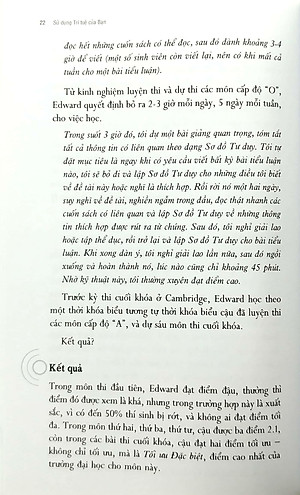 22 Sử dụng Trí tuệ của Bạn
đọc hết những cuốn sách có thể đọc, sau đó dành khoảng 3-4
giờ để viết (một số sinh viên còn viết lại, nên có khi mất cả
tuần cho một bài tiểu luận).
Từ kinh nghiệm luyện thi và dự thi các môn cấp độ "O",
Edward quyết định bỏ ra 2-3 giờ mỗi ngày, 5 ngày mỗi tuần,
cho việc học.
Trong suốt 3 giờ đó, tôi dự một bài giảng quan trọng, tóm tắt
tất cả thông tin có liên quan theo dạng Sơ đồ Tư duy. Tôi tự
đặt mục tiêu là ngay khi có yêu cầu viết bất kỳ bài tiểu luận
nào, tôi sẽ bỏ đi và lập Sơ đồ Tư duy cho những điều tôi biết
về đề tài này hoặc nghĩ là thích hợp. Rồi rời nó một hai ngày,
suy nghĩ về đề tài, nghiền ngẫm trong đầu, đọc thật nhanh các
cuốn sách có liên quan và lập Sơ đồ Tư duy về những thông
tin thích hợp được rút ra từ chúng. Sau đó, tôi nghỉ giải lao
hoặc tập thể dục, rồi trở lại và lập Sơ đồ Tư duy cho bài tiểu
luận. Khi xong dàn ý, tôi nghỉ giải lao lần nữa, sau đó ngồi
xuống và hoàn thành nó, lúc nào cũng chỉ khoảng 45 phút.
Nhờ kỹ thuật này, tôi thường xuyên đạt điểm cao.
Trước kỳ thi cuối khóa ở Cambridge, Edward học theo
một thời khóa biểu tương tự thời khóa biểu cậu đã luyện thi
các môn cấp độ "A", và dự sáu môn thi cuối khóa.
Kết quả?
Kết quả
Trong môn thi đầu tiên, Edward đạt điểm đậu, thường thì
điểm đó được xem là khá, nhưng trong trường hợp này là xuất
sắc, vì có đến 50% thí sinh bị rớt, và không ai đạt điểm tối
đa. Trong môn thứ hai, thứ ba, thứ tư, cậu được ba điểm 2.1,
còn trong các bài thi cuối khóa, cậu đạt hai điểm tối ưu –
không chỉ tối ưu, mà là Tối ưu Đặc biệt, điểm cao nhất của
trường đại học cho môn này.